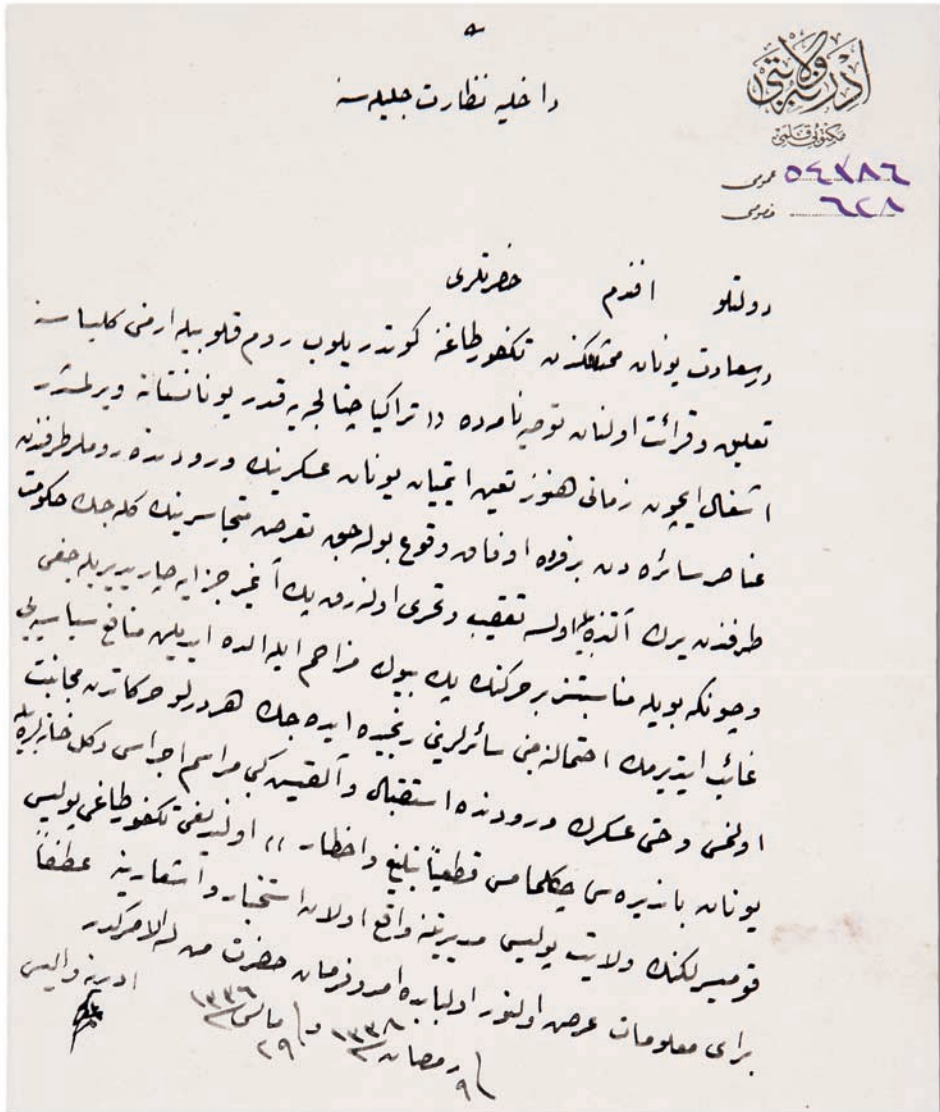 ادرنه ولايتى
مكتوبى قلمى
عمومى ٥٤٧٨٦
خصوصى ٦٢٨
داخليه نظارت جليله سنه
دولتلو افندم حضرتلرى
درسعادت يونان ممثللكندن تكفورطاغنه كوندريلوب روم قلوبيله ارمنى كليساسنه
تعليق و قرائت اولنان توصيه نامه ده (( تراكيا چتالجه يه قدر يونانستانه ويرلمشدر
اشغال ايچون زمانى هنوز تعين ايتميان يونان عسكرينك ورودنده روملر طرفندن
عناصر سائره دن برفرده اوفاق وقوع بوله جق تعرض متجاسرينك كله جك حكومت
طرفندن يرك آلتنده اولسه تعقيب و تحرى اولنه رق پك آغير جزايه چارپديريله جغى
وچونكه بويله مناسبتسز بر حركتك پك بيوك مزاحم ايله الده ايديلن منافع سياسيه يى
غائب ايتديرمك احتمالنه مبنى سائرلرينى رنجيده ايده جك هر درلو حركاتدن مجانبت
اولنمسى و حتى عسكرك ورودنده استقبال و آلقيش كبى مراسم اجراسى دكل خانه لره بيله
يونان بانديره سى چكلمامسى قطعياً تبليغ و اخطار )) اولنديغى تكفورطاغى پوليس
قوميسرلكنك ولايت پوليس مديريتنه واقع اولان استخبار و اشعارينه عطفاً
براى معلومات عرض اولنور اولبابده امر و فرمان حضرت من له الامركدر
٩ رمضان ١٣٣٨ و ٢٩ مايس ١٣٣٦
ادرنه واليسى